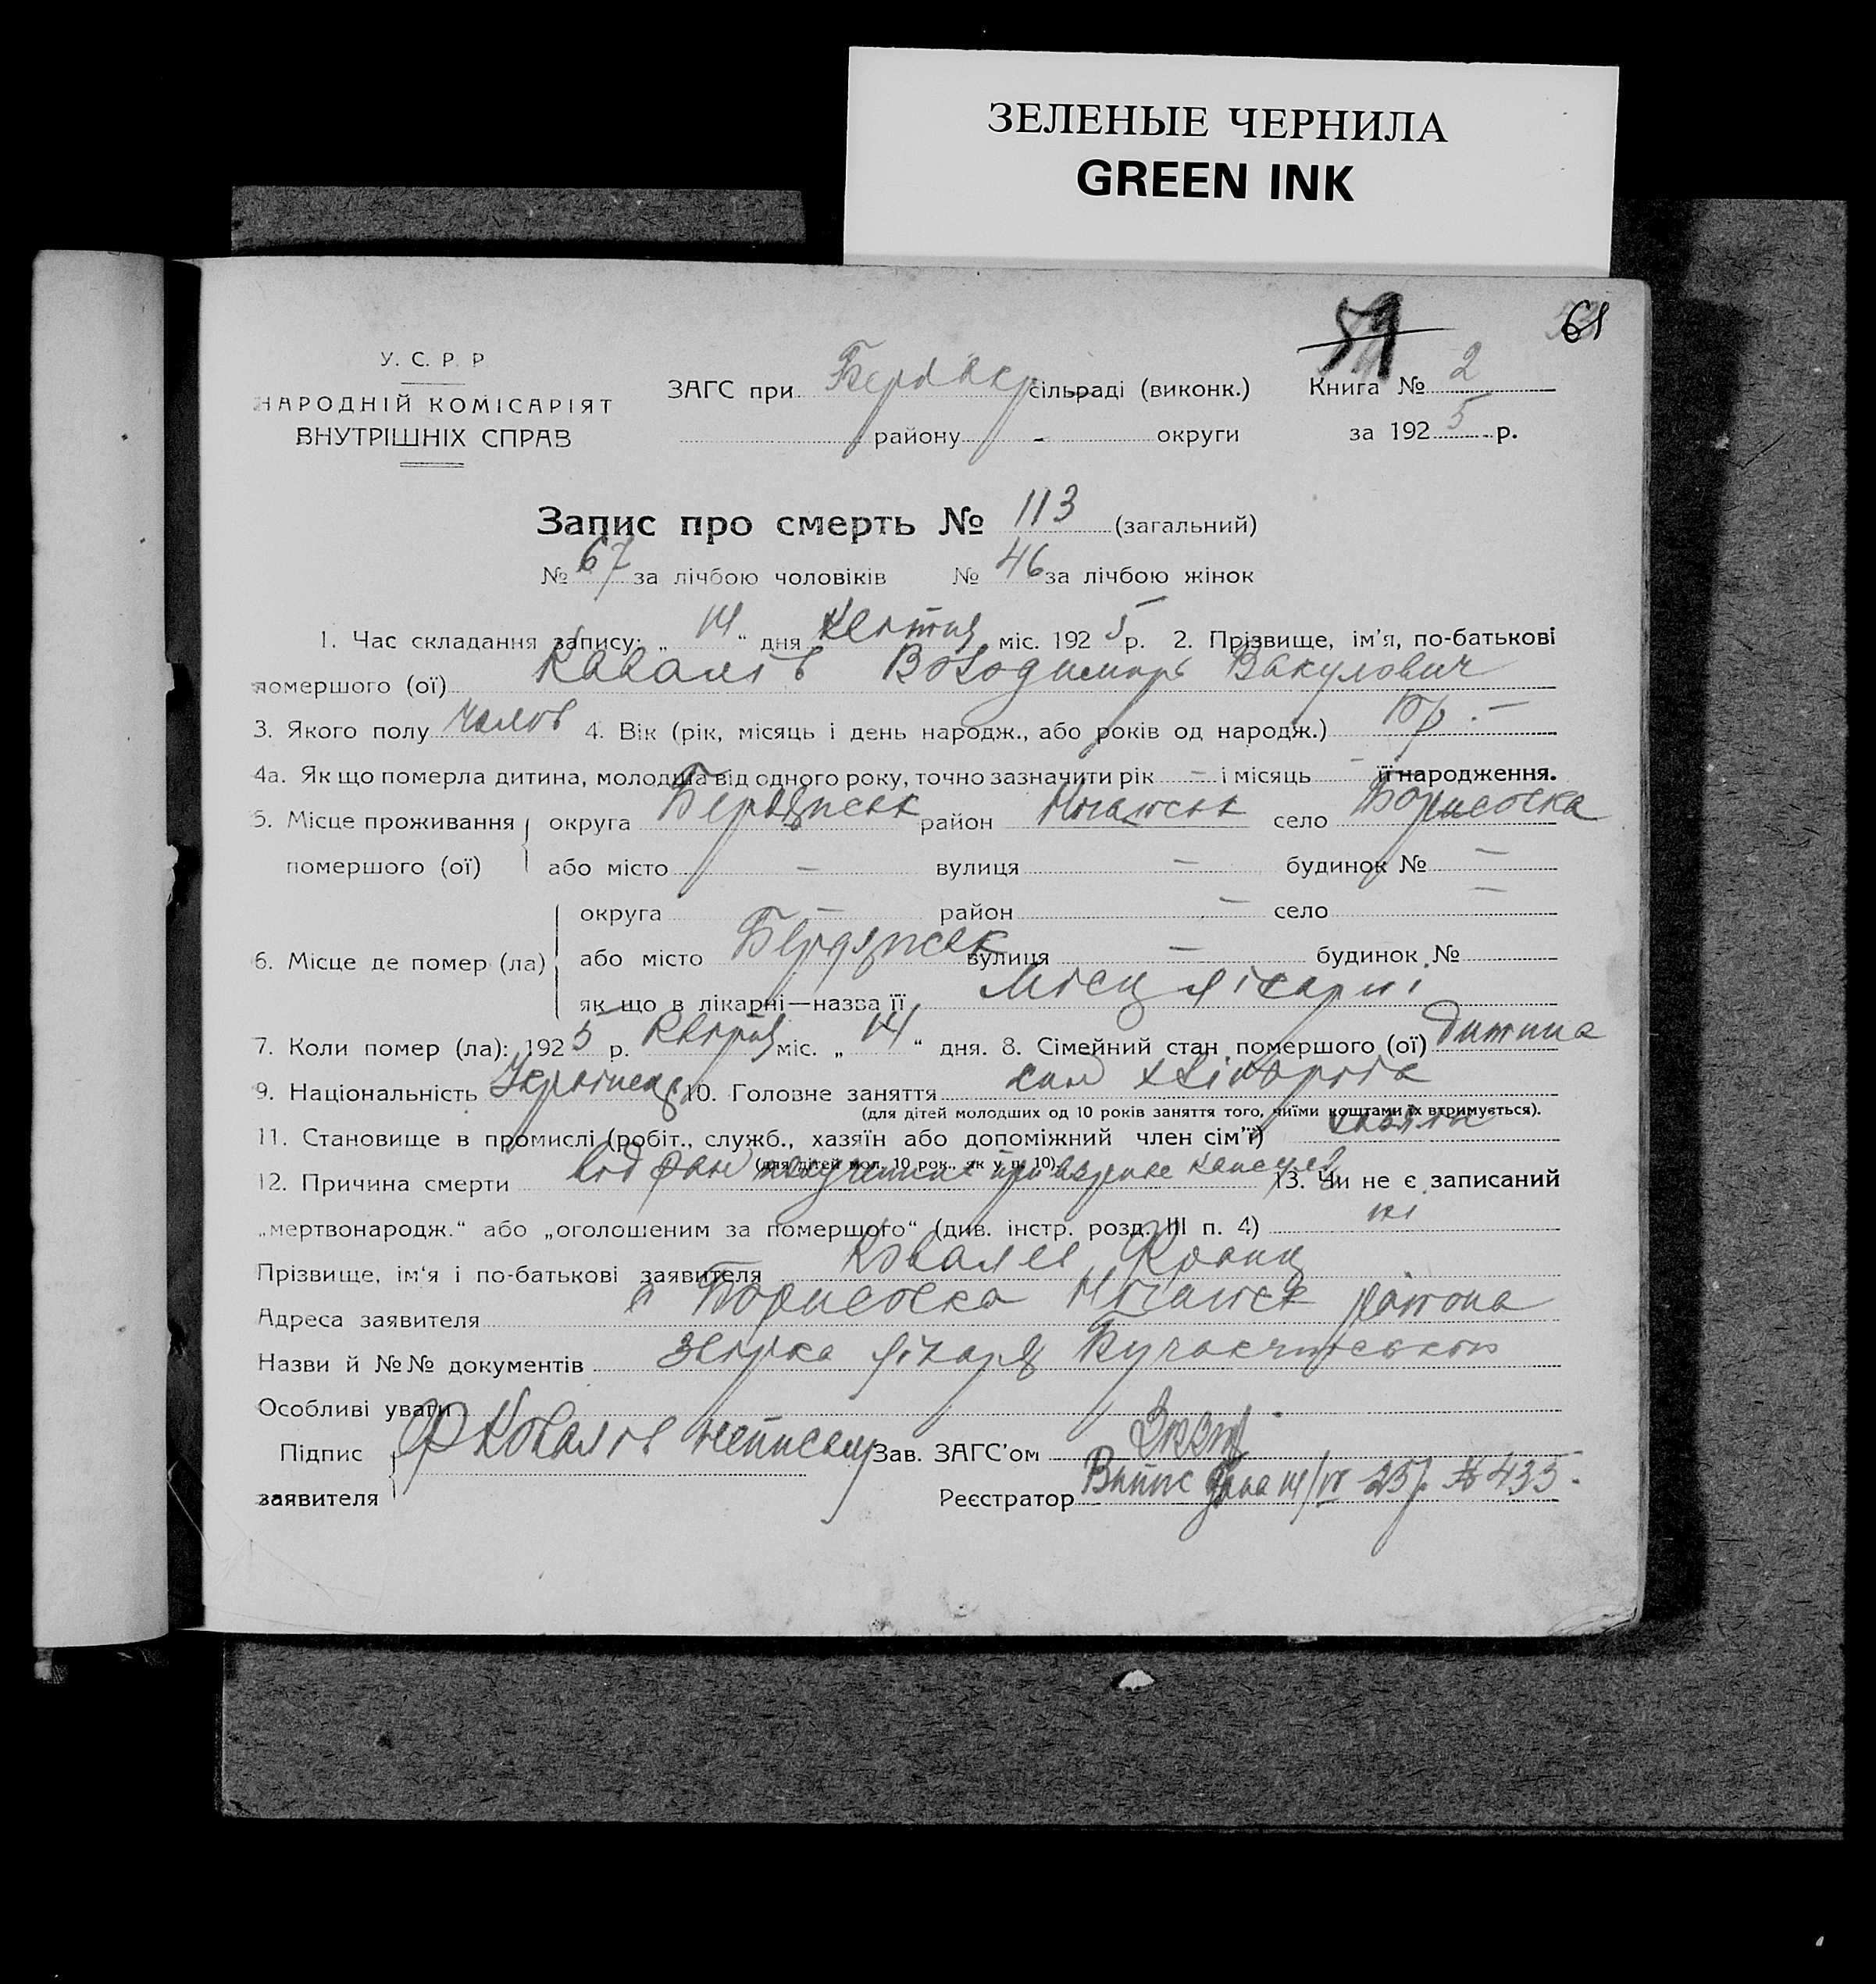 ЗЕЛЕНЫЕ ЧЕРНИЛА
GREEN INK
59
61
У. С. Р. Р
НАРОДНІЙ КОМІСАРІЯТ
ВНУТРІШНІХ СПРАВ
ЗАГС при сільраді (виконк.)
району - округи
Книга № 2
за 1925 р.
Запис про смерть № 113 (загальний)
№ 67 за лічбою чоловіків № 46 за лічбою жінок
1. Час складання запису: „14“ дня квітня міс. 1925 р. 2. Прізвище, ім'я, по-батькові
помершого (ої) Ковалів Володимир Вакулович
3. Якого полу чолов 4. Вік (рік, місяць і день народж., або років од народж.)
4а. Як що померла дитина, молодша від одного року, точно зазначити рік – і місяць – її народження.
5. Місце проживання помершого (ої) округа Бердянськ район Ногайськ село Борисовка
або місто – вулиця – будинок № –
6. Місце де помер (ла) округа – район – село –
або місто Бердянськ вулиця – будинок №
як що в лікарні—назва її Міськ лікарні
7. Коли помер (ла): 1925 р. квітня міс. „14“ дня. 8. Сімейний стан помершого (ої) дитина
9. Національність Українець 10. Головне заняття син хлібороба
(для дітей молодших од 10 років заняття того, чиїми коштами їх втримується).
11. Становище в промислі (робіт., служб., хазяїн або допоміжний член сім'ї) хазяїн
(для дітей мол. 10 рок., як у п. 10)
12. Причина смерти від ран 13. Чи не є записаний
„мертвонародж.“ або „оголошеним за помершого“ (див. інстр. розд. III п. 4) ні
Прізвище, ім'я і по-батькові заявителя
Адреса заявителя с Борисовка Ногайськ района
Назви й №№ документів лікаря
Особливі уваги
Підпис заявителя Ф Ковалів Зав. ЗАГС'ом
Реєстратор 14/IV 25 р. № 435.